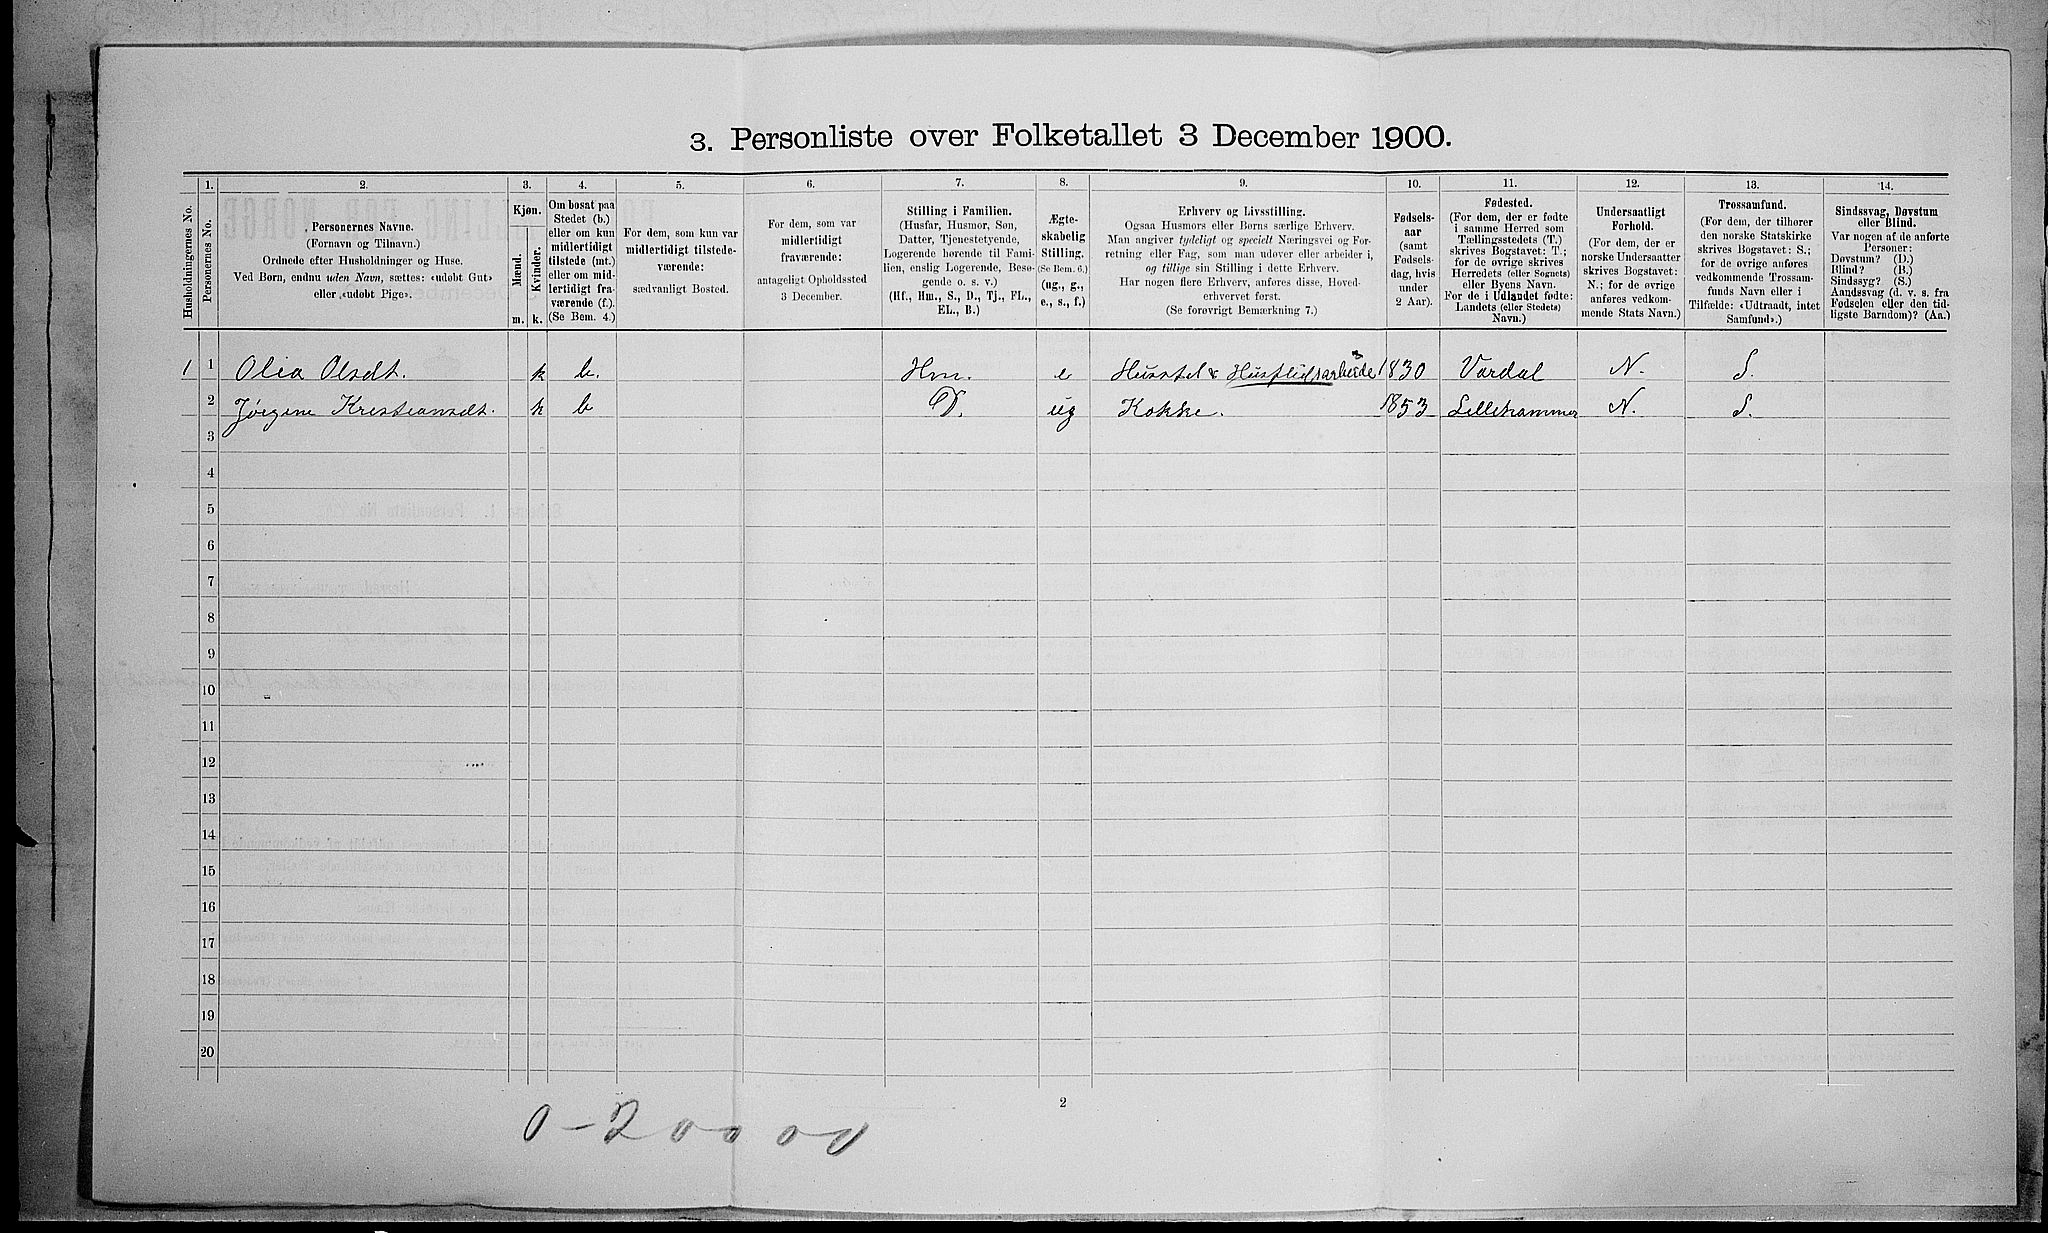 3. Personliste over Folketallet 3 December 1900.
1. 2. 3. 4. 5. 6. 7. 8. 9. 10. 11. 12. 13. 14.
Husholdningernes No.
Personernes No.
Personernes Navne.
(Fornavn og Tilnavn.)
Ordnede efter Husholdninger og Huse.
Ved Børn, endnu uden Navn, sættes: «udøbt Gut»
eller «udøbt Pige».
Kjøn.
Mænd.
Kvinder.
m. k.
Om bosat paa
Stedet (b.)
eller om kun
midlertidigt
tilstede (mt.)
eller om mid-
lertidigt fra-
værende (f.).
(Se Bem. 4.)
For dem, som kun var
midlertidigt tilstede-
værende:
sædvanligt Bosted.
For dem, som var
midlertidigt
fraværende:
antageligt Opholdssted
3 December.
Stilling i Familien.
(Husfar, Husmor, Søn,
Datter, Tjenestetyende,
Logerende hørende til Fami-
lien, enslig Logerende, Besø-
gende o. s. v.)
(Hf., Hm., S., D., Tj., FL.,
EL., B.)
Ægte-
skabelig
Stilling.
(Se Bem. 6.)
(ug., g.,
e., s., f.)
Erhverv og Livsstilling.
Ogsaa Husmors eller Børns særlige Erhverv.
Man angiver tydeligt og specielt Næringsvei og For-
retning eller Fag, som man udøver eller arbeider i,
og tillige sin Stilling i dette Erhverv.
Har nogen flere Erhverv, anføres disse, Hoved-
erhvervet først.
(Se forøvrigt Bemærkning 7.)
Fødsels-
aar
(samt
Fødsels-
dag, hvis
under
2 Aar).
Fødested.
(For dem, der er fødte
i samme Herred som
Tællingsstedets (T.)
skrives Bogstavet: T.;
for de øvrige skrives
Herredets (eller Sognets)
eller Byens Navn.
For de i Udlandet fødte:
Landets (eller Stedets)
Navn.)
Undersaatligt
Forhold.
(For dem, der er
norske Undersaatter
skrives Bogstavet:
N.; for de øvrige
anføres vedkom-
mende Stats Navn.)
Trossamfund.
(For dem, der tilhører
den norske Statskirke
skrives Bogstavet: S.;
for de øvrige anføres
vedkommende Trossam-
funds Navn eller i
Tilfælde: «Udtraadt, intet
Samfund».)
Sindssvag, Døvstum
eller Blind.
Var nogen af de anførte
Personer:
Døvstum? (D.)
Blind? (B.)
Sindssyg? (S.)
Aandssvag (d. v. s. fra
Fødselen eller den tid-
ligste Barndom)? (Aa.)
1 1 Olia Olsdt. k b. Hm. e Husstel & Husflidsarbeide 1830 Vardal N. S.
2 Jørgine Kristiansdt. k b D. ug Kokke. 1853 Lillehammer N. S.
3
4
5
6
7
8
9
10
11
12
13
14
15
16
17
18
19
20
2
0-200 00